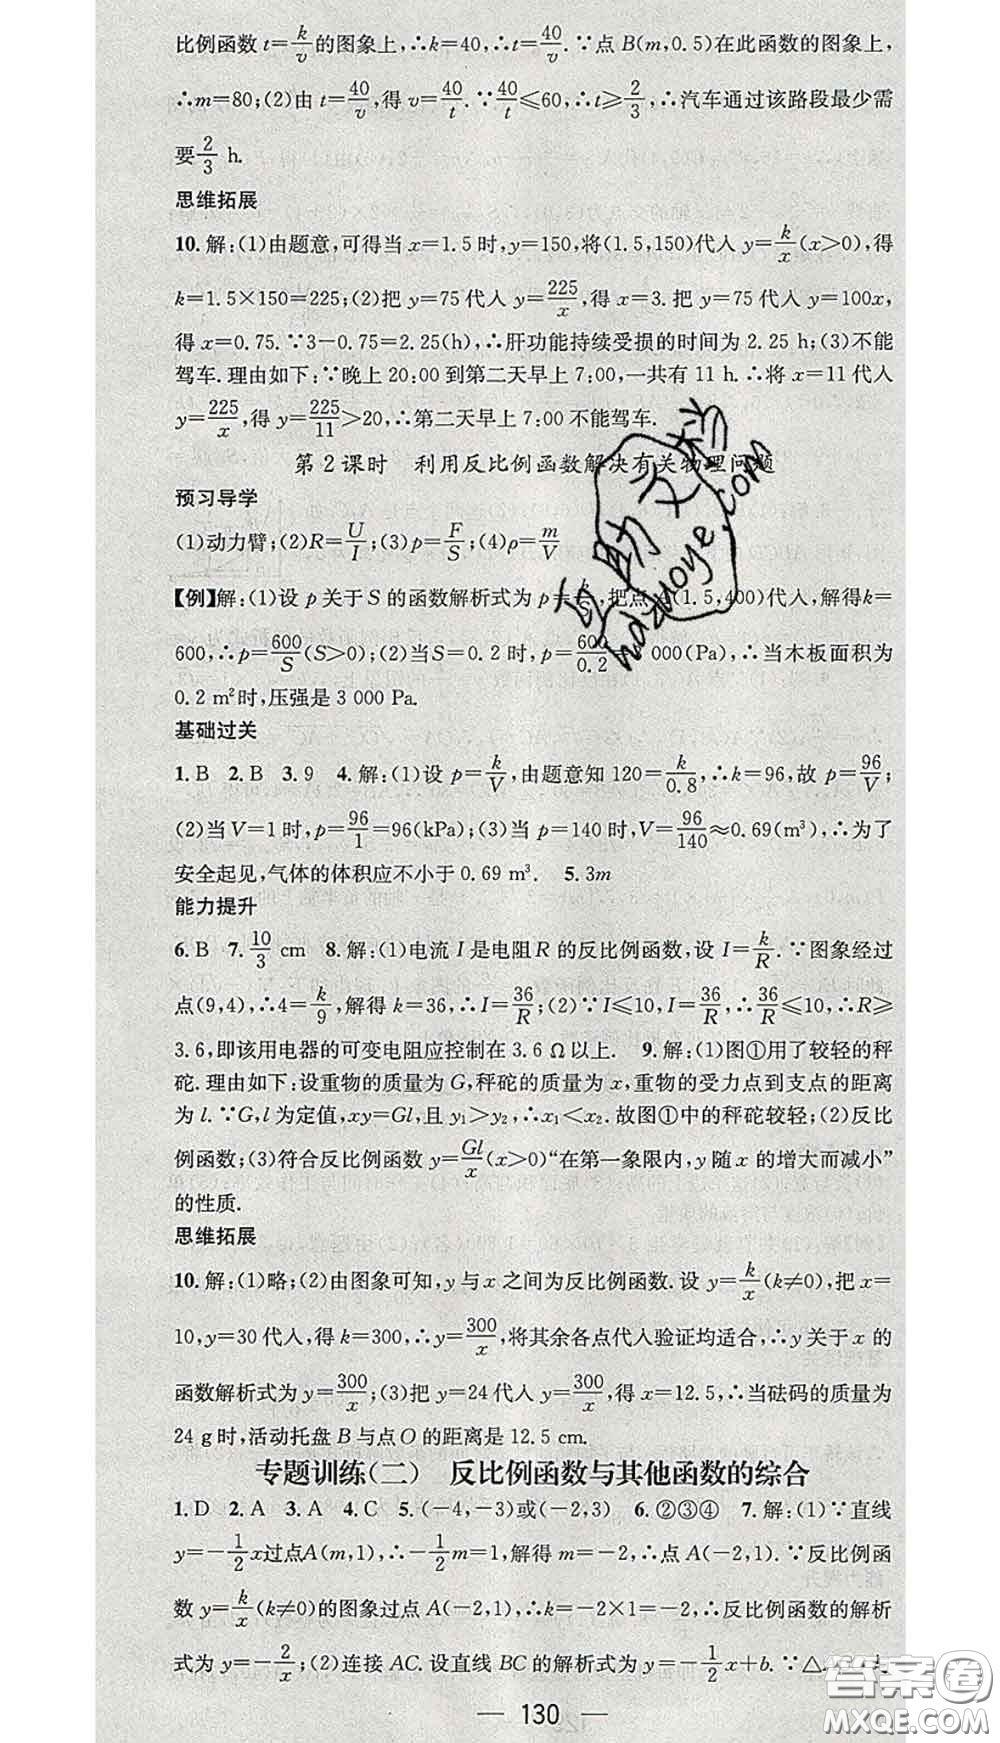 比例函数 t=k/v的图象上,∴k=40,∴t=40/v.∵点 B(m,0.5)在此函数的图象上,
∴m=80;(2)由 t=40/v,得 v=40/t.∵40/t≤60,∴t≥2/3,∴汽车通过该路段最少需
要2/3 h.
思维拓展
10.解:(1)由题意,可得当 x=1.5 时,y=150,将(1.5,150)代入 y=k/x(x>0),得
k=1.5×150=225;(2)把 y=75 代入 y=225/x,得 x=3.把 y=75 代入 y=100x,
得 x=0.75.∵3-0.75=2.25(h),∴肝功能持续受损的时间为 2.25 h;(3)不能
驾车.理由如下:∵晚上 20:00 到第二天早上 7:00,一共有 11 h.∴将 x=11 代入
y=225/x,得 y=225/11>20,∴第二天早上 7:00 不能驾车.
第 2 课时 利用反比例函数解决有关物理问题
预习导学
(1)动力臂;(2)R=U/I;(3)p=F/S;(4)ρ=m/V
【例】解:(1)设 p 关于 S 的函数解析式为 p=k/S,把点 (1.5,400)代入,解得 k=
600,∴p=600/S(S>0);(2)当 S=0.2 时,p=600/0.2= 000(Pa),∴当木板面积为
0.2 m²时,压强是 3 000 Pa.
基础过关
1.B 2.B 3.9 4.解:(1)设 p=k/V,由题意知 120=k/0.8,∴k=96,故 p=96/V;
(2)当 V=1 时,p=96/1=96(kPa);(3)当 p=140 时,V=96/140≈0.69(m³),∴为了
安全起见,气体的体积应不小于 0.69 m³. 5.3m
能力提升
6.B 7.10/3 cm 8.解:(1)电流 I 是电阻 R 的反比例函数,设 I=k/R.∵图象经过
点(9,4),∴4=k/9,解得 k=36,∴I=36/R;(2)∵I≤10,I=36/R,∴36/R≤10,∴R≥
3.6,即该用电器的可变电阻应控制在 3.6 Ω 以上. 9.解:(1)图①用了较轻的秤
砣.理由如下:设重物的质量为 G,秤砣的质量为 x,重物的受力点到支点的距离
为 l.∵G,l 为定值,xy=Gl,且 y₁>y₂,∴x₁<x₂.故图①中的秤砣较轻;(2)反比
例函数;(3)符合反比例函数 y=Gl/x(x>0)“在第一象限内,y 随 x 的增大而减小”
的性质.
思维拓展
10.解:(1)略;(2)由图象可知,y 与 x 之间为反比例函数.设 y=k/x(k≠0),把 x=
10,y=30 代入,得 k=300,∴y=300/x,将其余各点代入验证均适合,∴y 关于 x 的
函数解析式为 y=300/x;(3)把 y=24 代入 y=300/x,得 x=12.5,∴当砝码的质量为
24 g 时,活动托盘 B 与点 O 的距离是 12.5 cm.
专题训练(二) 反比例函数与其他函数的综合
1.D 2.A 3.A 4.C 5.(-4,-3)或(-2,3) 6.②③④ 7.解:(1)∵直线
y=-1/2x过点A(m,1),∴-1/2m=1,解得 m=-2,∴点 A(-2,1).∵反比例函
数 y=k/x(k≠0)的图象过点 A(-2,1),∴k=-2×1=-2,∴反比例函数的解析
式为 y=-2/x;(2)连接 AC.设直线 BC 的解析式为 y=-1/2x+b.∵△
— 130 —
作业 助 文 档
hdzuoye.com
答案圈
MXQE.COM